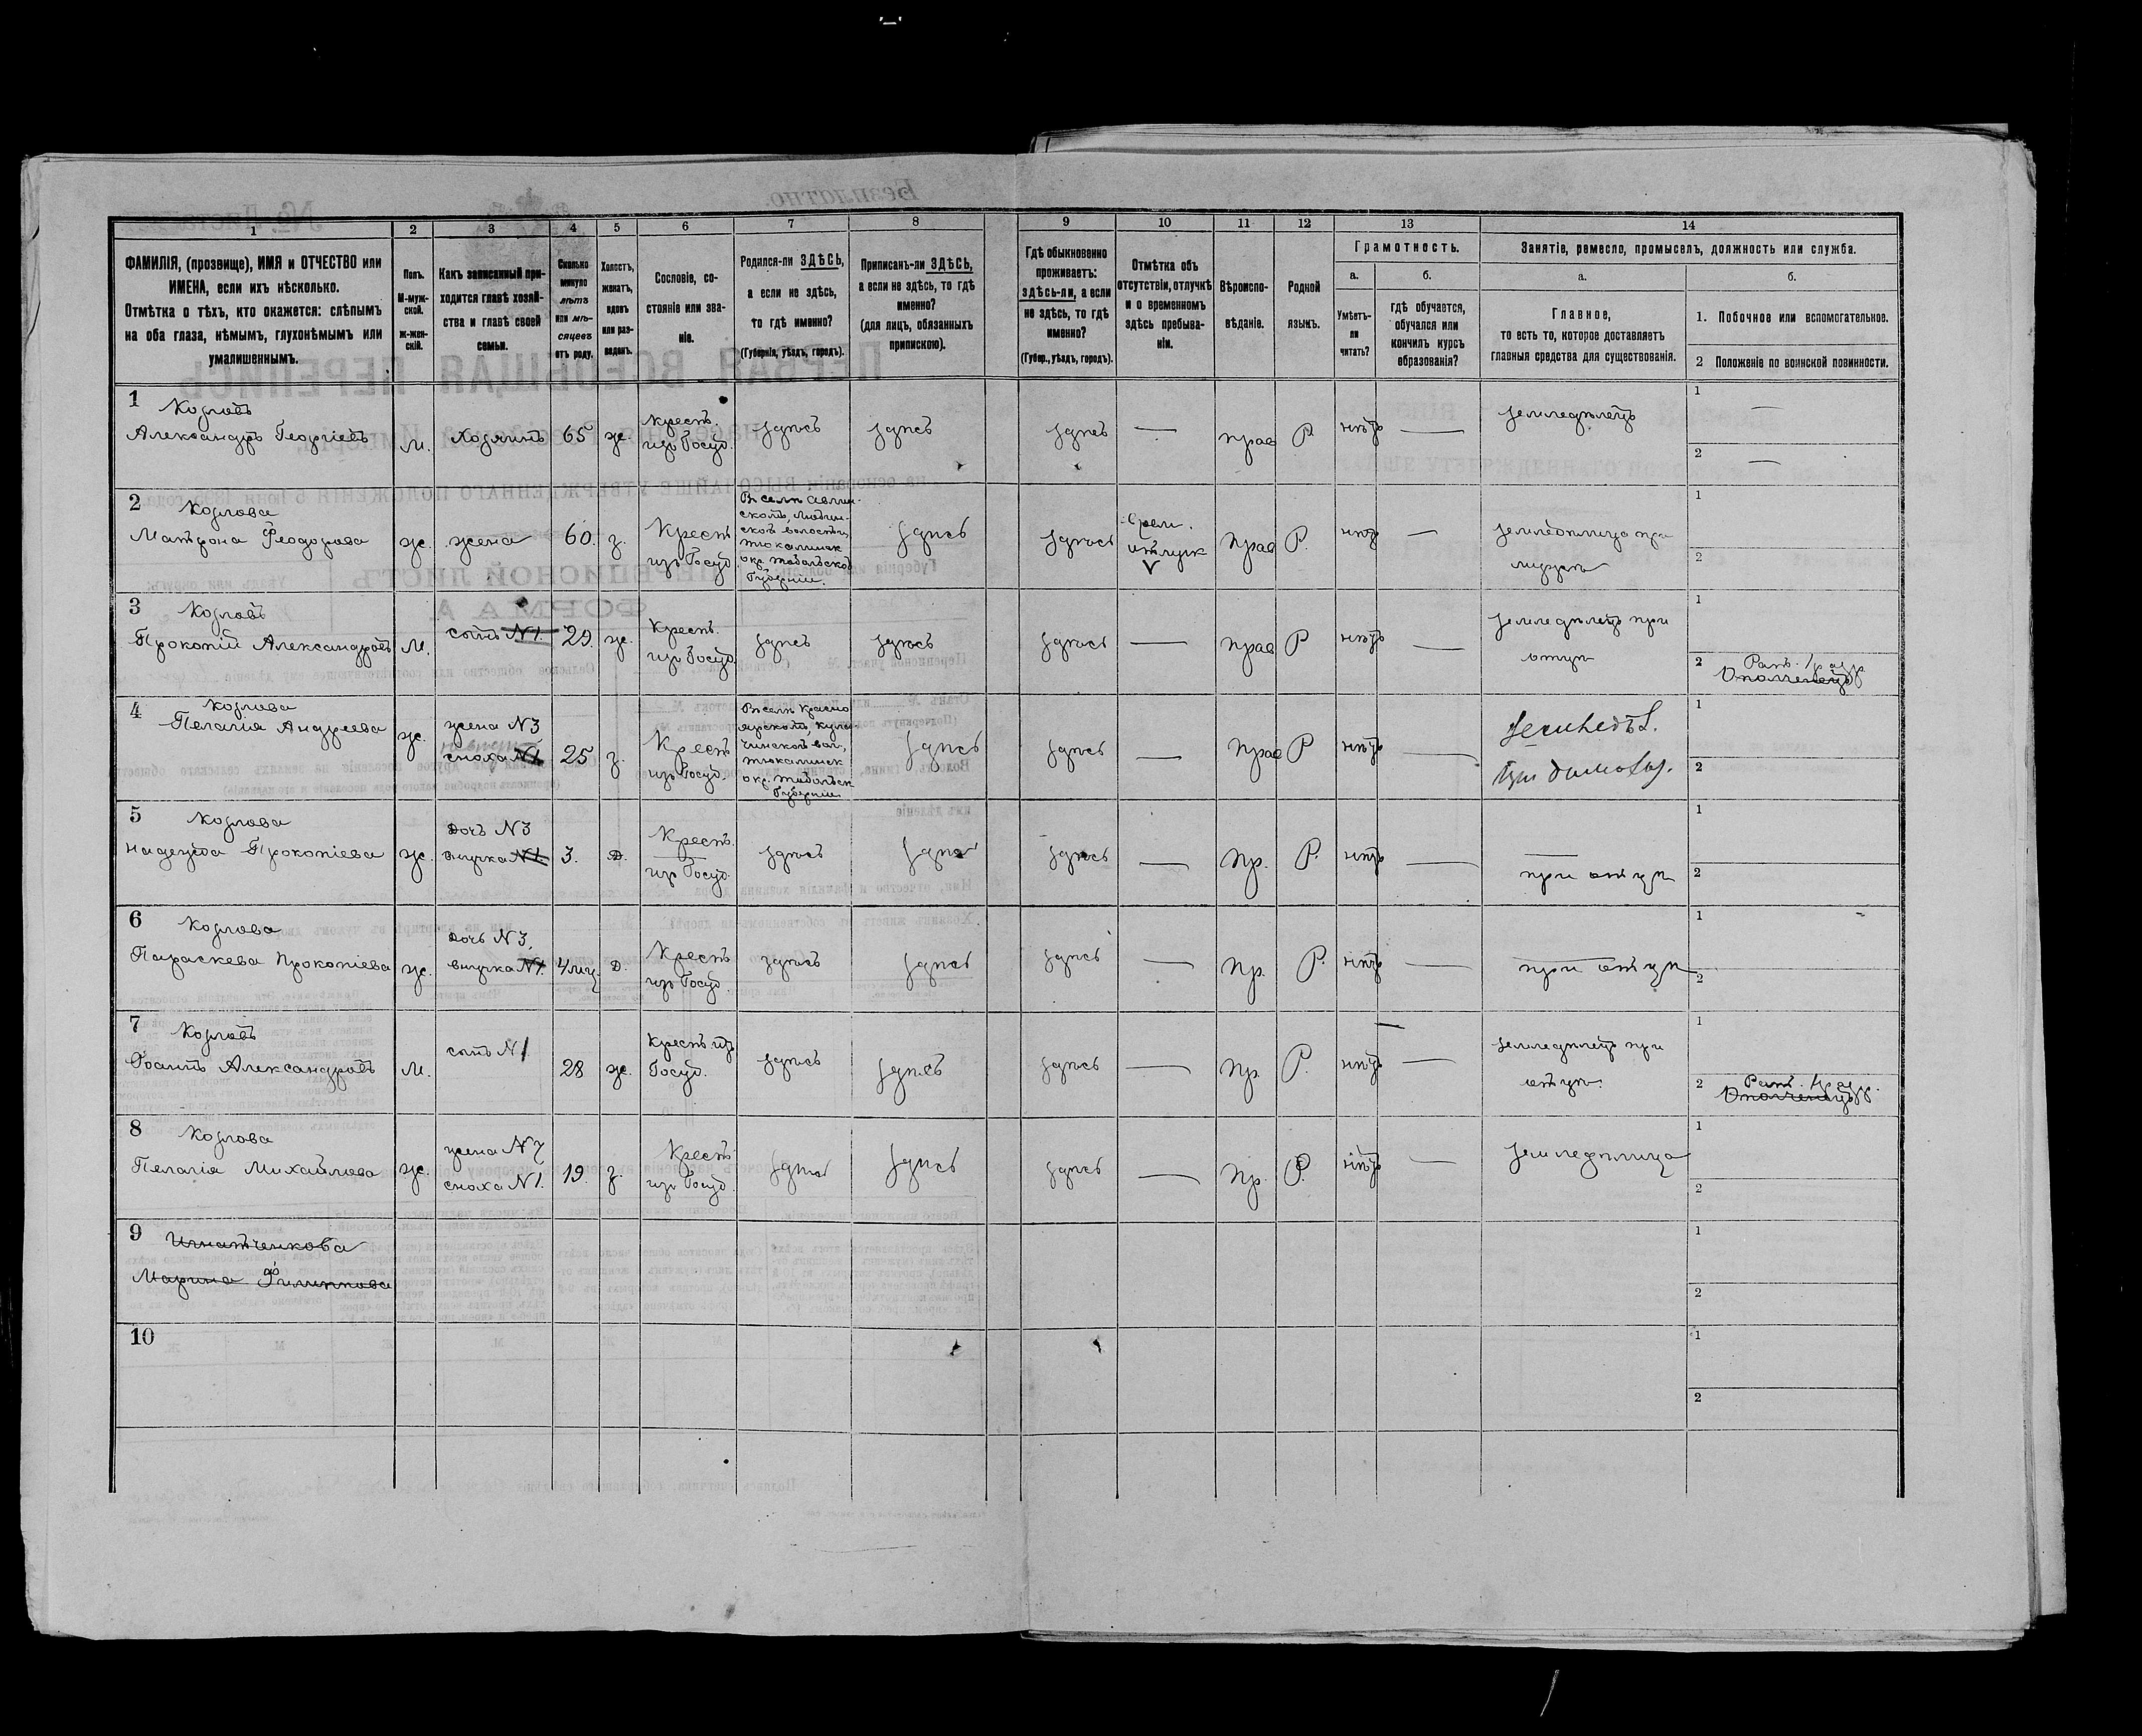 1 2 3 4 5 6 7 8 9 10 11 12 13 14
ФАМИЛІЯ, (прозвище), ИМЯ и ОТЧЕСТВО или
ИМЕНА, если ихъ нѣсколько.
Отмѣтка о тѣхъ, кто окажется: слѣпымъ
на оба глаза, нѣмымъ, глухонѣмымъ или
умалишеннымъ.
Полъ.
М-муж-
ской.
ж-жен-
скій.
Какъ записанный при-
ходится главѣ хозяй-
ства и главѣ своей
семьи.
Сколько
минуло
лѣтъ
или мѣ-
сяцевъ
отъ роду.
Холостъ,
женатъ,
вдовъ
или раз-
веденъ.
Сословіе, со-
стояніе или зва-
ніе.
Родился-ли ЗДѢСЬ,
а если не здѣсь,
то гдѣ именно?
(Губернія, уѣздъ, городъ).
Приписанъ-ли ЗДѢСЬ,
а если не здѣсь, то гдѣ
именно?
(для лицъ, обязанныхъ
припискою).
Гдѣ обыкновенно
проживаетъ:
здѣсь-ли, а если
не здѣсь, то гдѣ
именно?
(Губер., уѣздъ, городъ).
Отмѣтка объ
отсутствіи, отлучкѣ
и о временномъ
здѣсь пребыва-
ніи.
Вѣроиспо-
вѣданіе.
Родной
языкъ.
Грамотность.
а.
Умѣетъ-
ли
читать?
б.
гдѣ обучается,
обучался или
кончилъ курсъ
образованія?
Занятіе, ремесло, промыселъ, должность или служба.
а.
Главное,
то есть то, которое доставляетъ
главныя средства для существованія.
б.
1. Побочное или вспомогательное.
2 Положеніе по воинской повинности.
1 Козловъ
Александръ Георгіевъ
М.
Хозяинъ
65
ж.
Крест.
изъ Госуд.
здѣсь
здѣсь
здѣсь
—
прав
Р.
нѣтъ
—
земледѣлецъ
1 —
2 —
2 Козлова
Матрона Феодорова
ж.
жена
60.
з.
Крест
изъ Госуд
Тюкалинск
окр. Тобольской
Губерніи.
здѣсь
здѣсь
отлучк
прав
Р.
нѣтъ
—
земледѣлица при
мужѣ
1
2
3 Козловъ
Прокопій Александровъ
М.
сынъ N1.
29.
ж.
Крест.
изъ Госуд.
здѣсь
здѣсь
здѣсь
—
прав
Р
нѣтъ
—
земледѣлецъ при
отцѣ
1
2 Рат. 1 разр
Ополченецъ
4 Козлова
Пелагія Андреева
ж.
жена N3
сноха N1
25
з.
Крест
изъ Госуд.
В селѣ Красно
ярскомъ, Кула-
чинской вол,
Тюкалинск
окр. Тобольск
Губерніи
здѣсь
здѣсь
—
прав
Р
нѣтъ
—
1
2
5 Козлова
Надежда Прокопіева
ж.
дочь N3
внучка N1
3.
д.
Крест.
изъ Госуд.
здѣсь
здѣсь
здѣсь
—
пр.
Р.
нѣтъ
—
при отцѣ
1
2
6 Козлова
Параскева Прокопіева
ж.
дочь N3.
внучка N1.
4 мц.
д.
Крест
изъ Госуд.
здѣсь
здѣсь
здѣсь
—
пр.
Р.
нѣтъ
—
при отцѣ
1
2
7 Козловъ
Іоаннъ Александровъ
М.
сынъ N1
28
ж.
Крест. изъ
Госуд.
здѣсь
здѣсь
здѣсь
—
пр.
Р.
нѣтъ
—
земледѣлецъ при
отцѣ.
1
2 Рат. 1 разр.
Ополченецъ
8 Козлова
Пелагія Михайлова
ж.
жена N7
сноха N1.
19.
з.
Крест
изъ Госуд.
здѣсь
здѣсь
здѣсь
—
пр.
Р.
нѣтъ
—
земледѣлица
1
2
9 Игнатченкова
Марина Филиппова
1
2
10
1
2